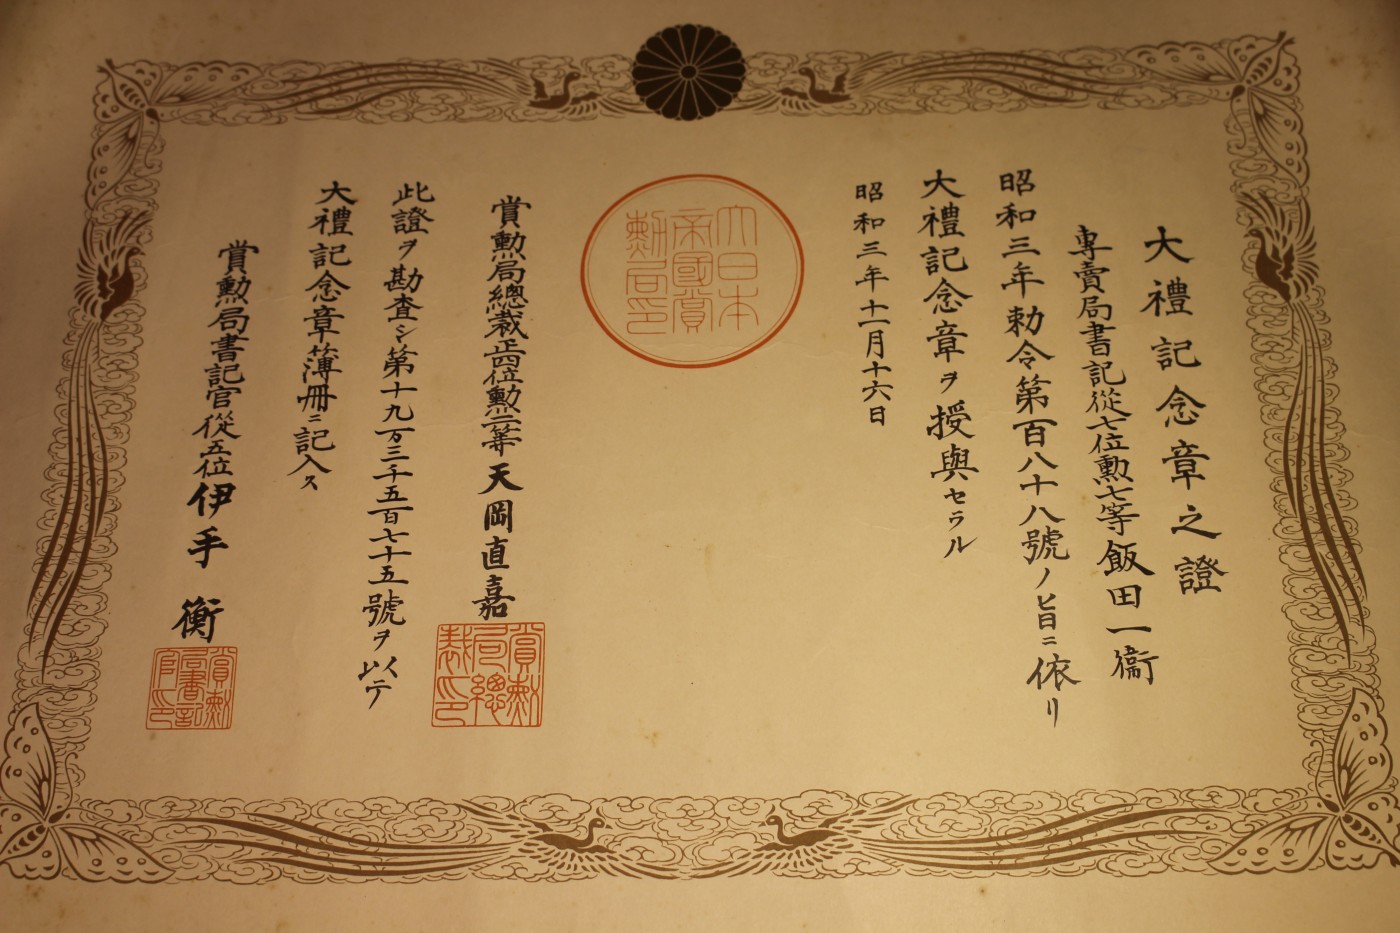 大禮記念章之證
專賣局書記從七位勲七等飯田一衞
昭和三年勅令第百八十八號ノ旨ニ依リ
大禮記念章ヲ授與セラル
昭和三年十一月十六日
大日本
帝國賞
勲局印
賞勲局總裁正四位勲二等天岡直嘉
賞勲
局總
裁印
此證ヲ勘査シ第十九万三千五百七十五號ヲ以テ
大禮記念章簿冊ニ記入ス
賞勲局書記官從五位伊手衡
賞勲
局書記
官印